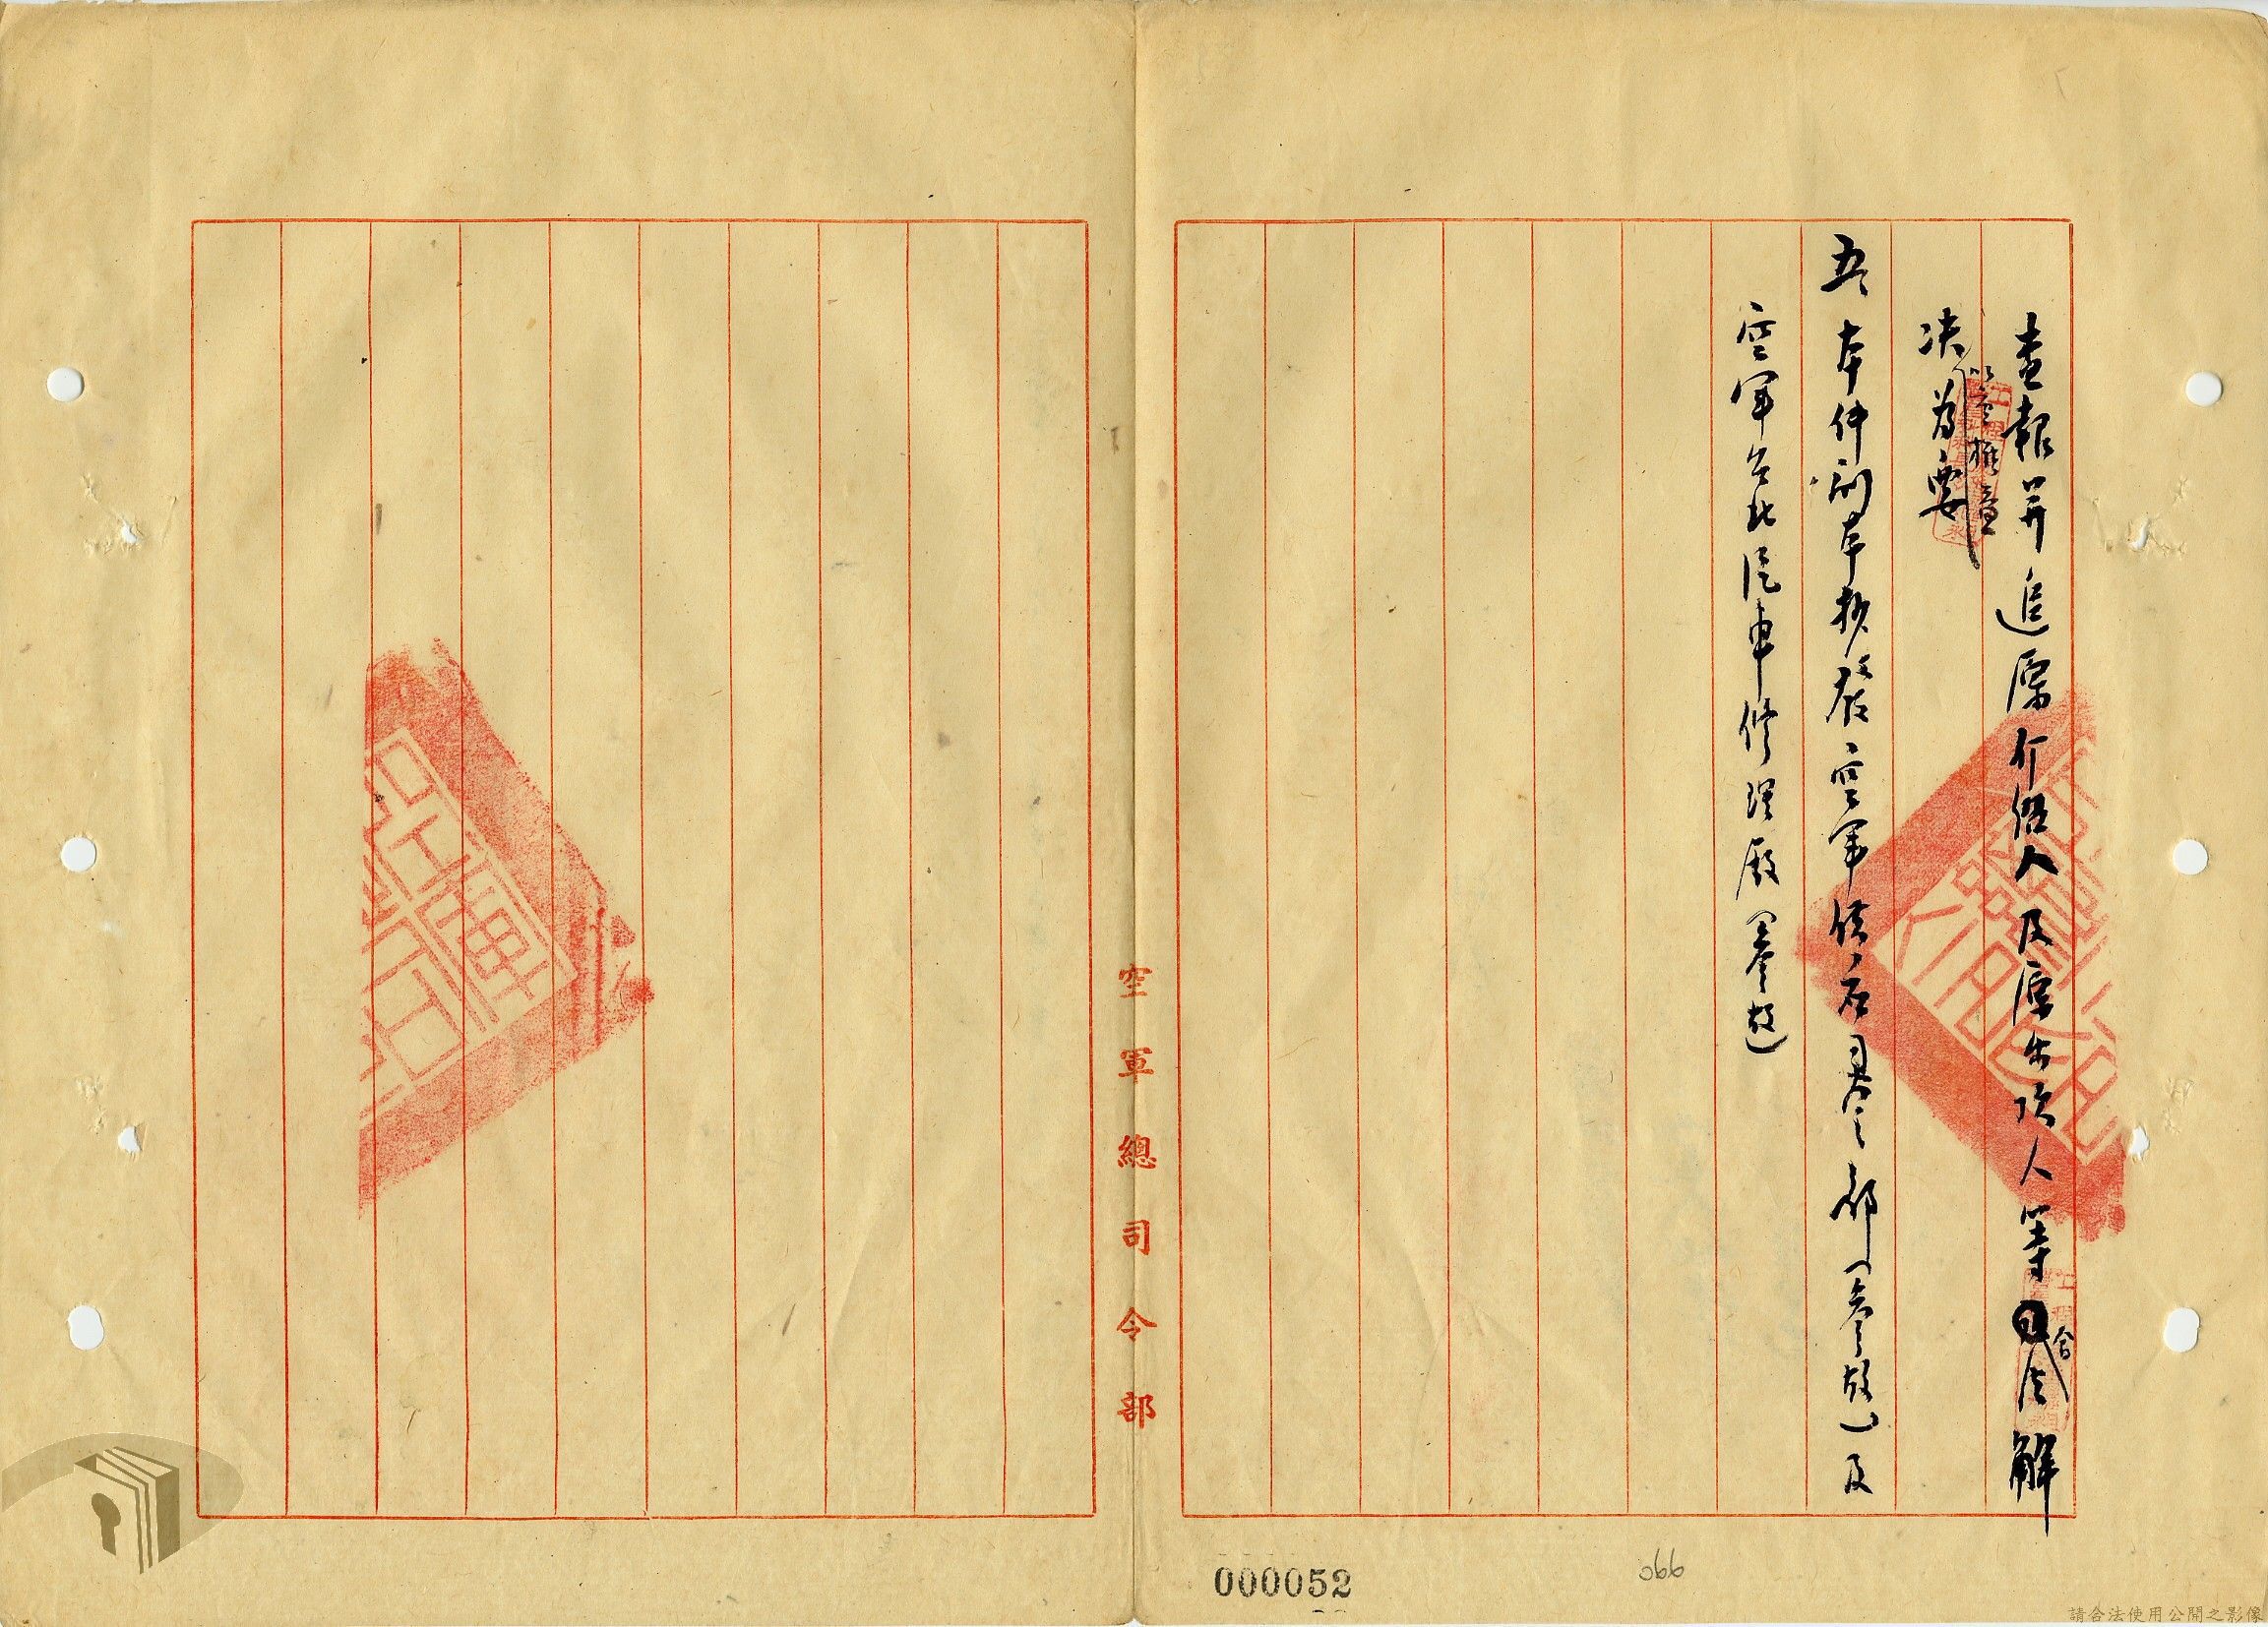 查報并追原介紹人及原出頂人等會法解
決以室權益為要
五、本件副本抄發空軍供应司令部(參攷)及
空軍台北汽車修理廠(參攷)
空軍總司令部
000052
066
請合法使用公開之影像